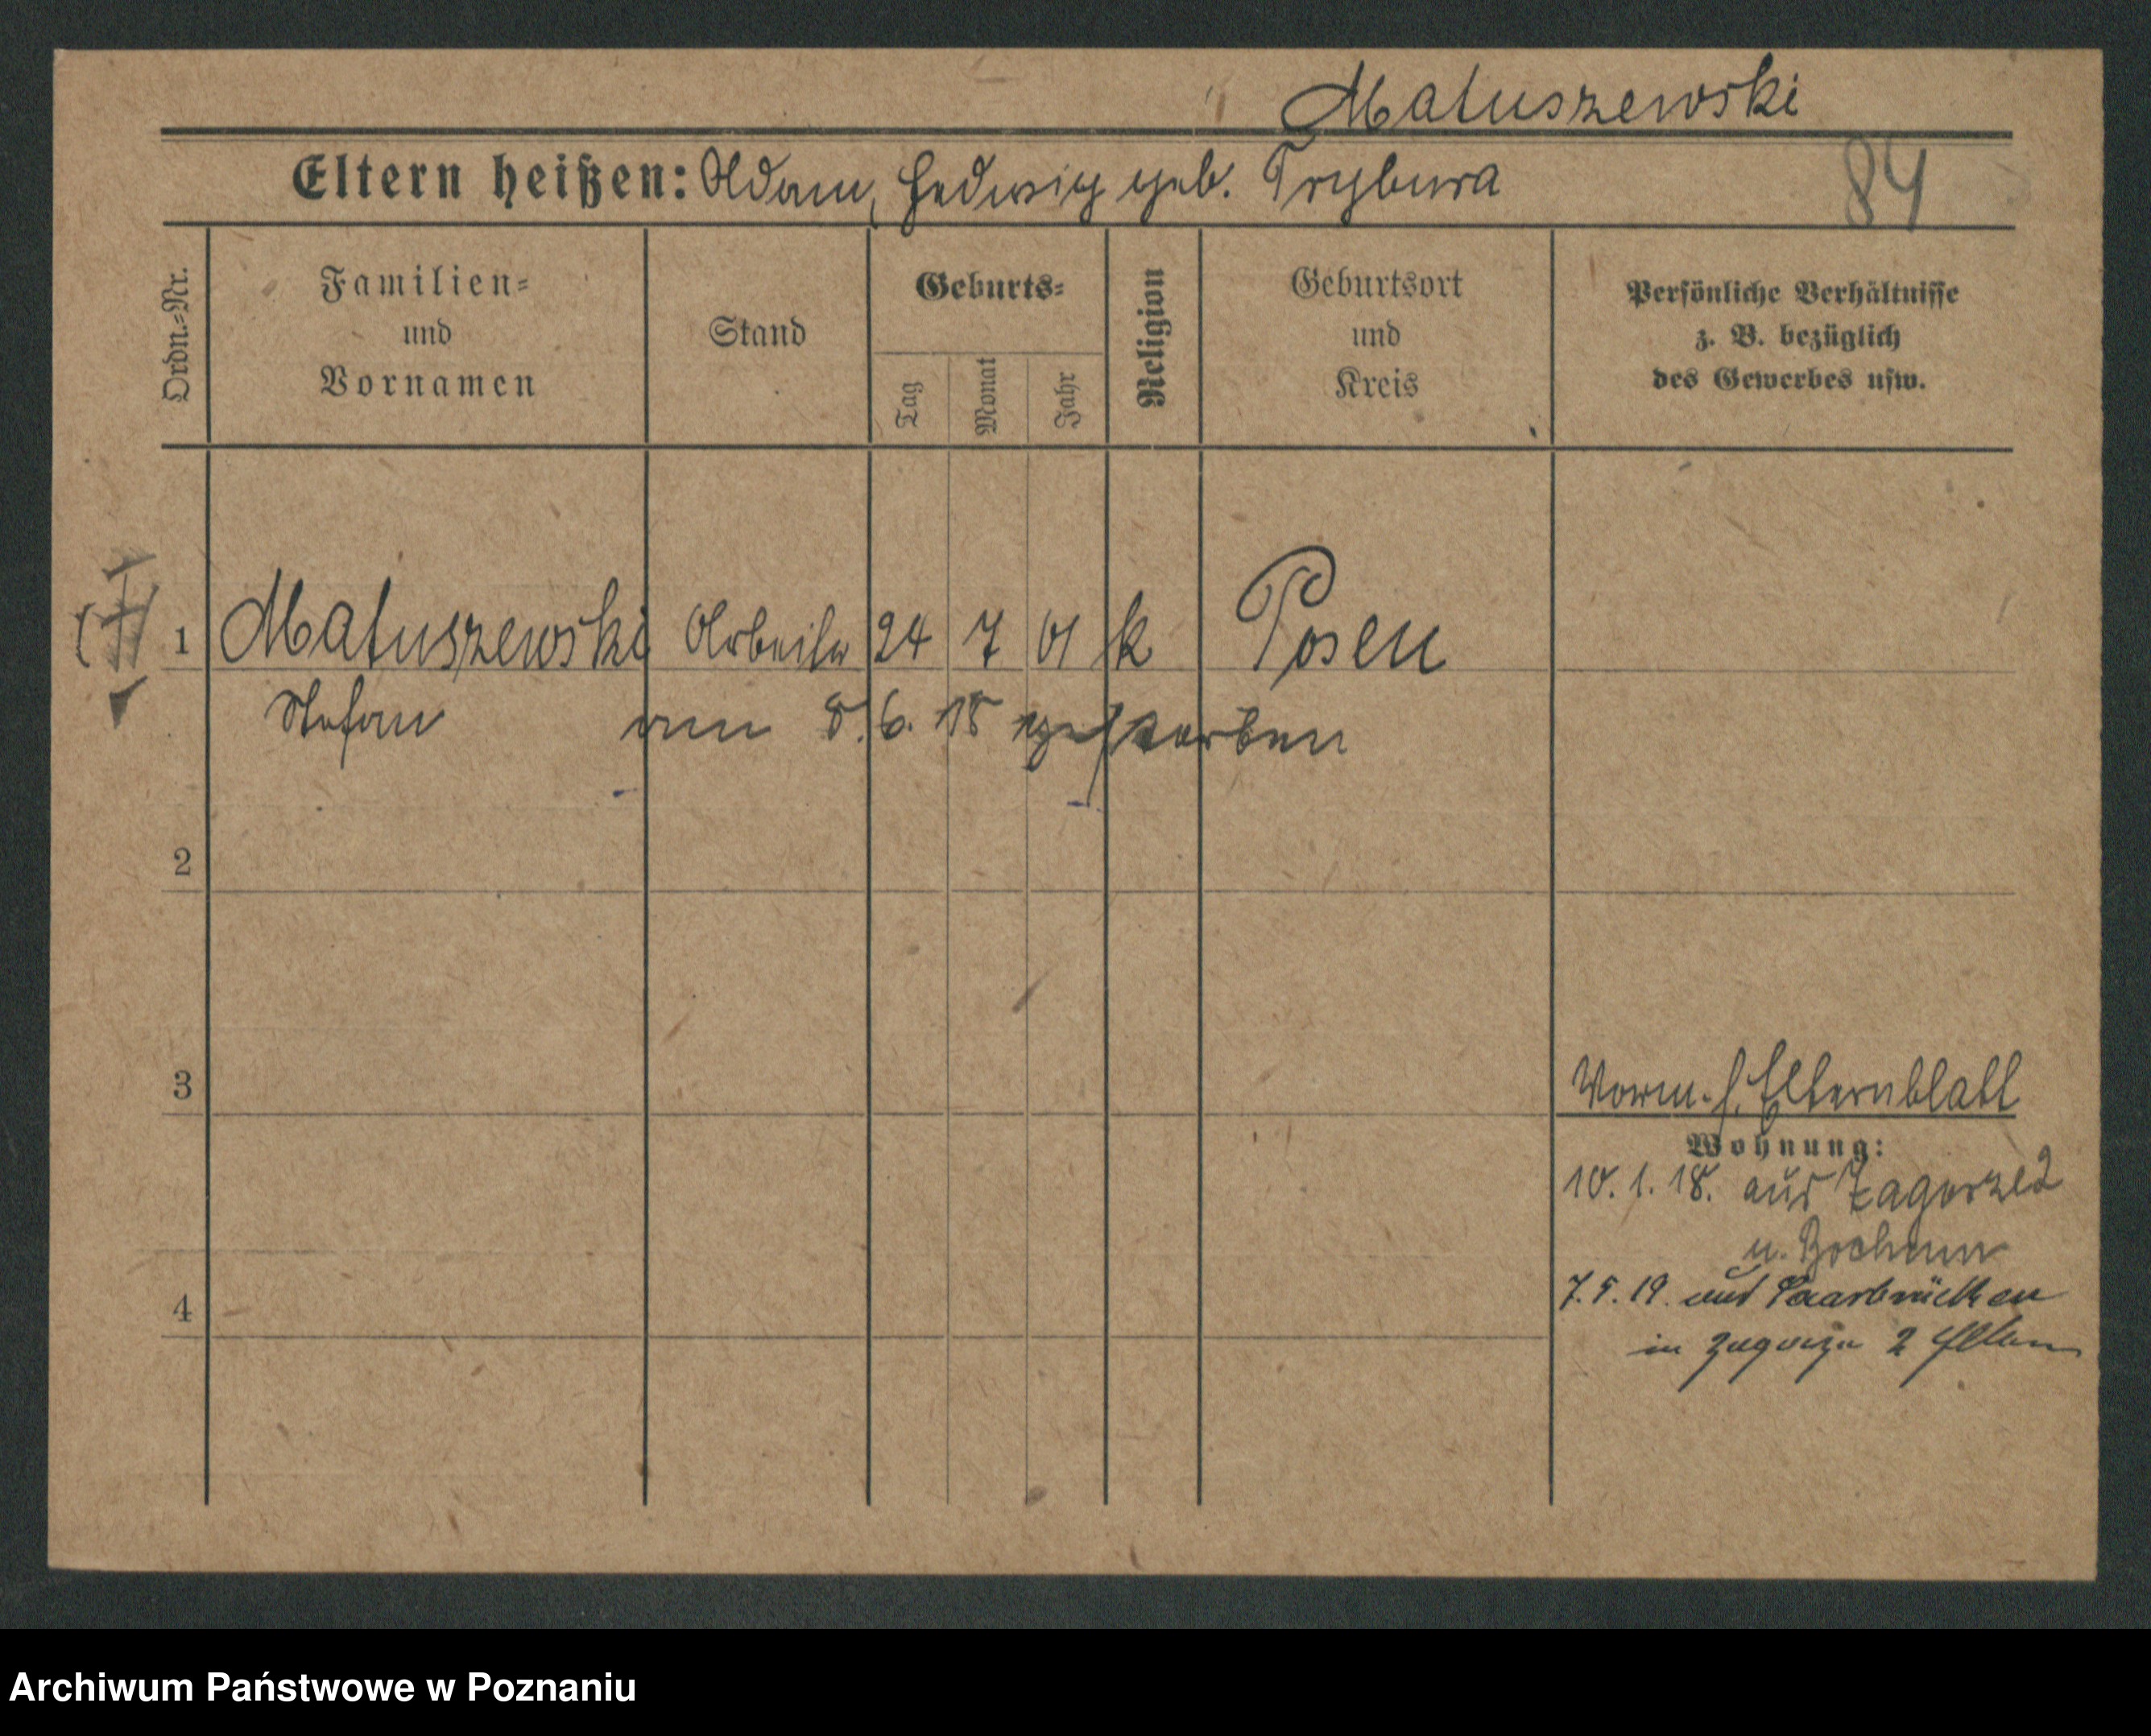 Matuszewski
Eltern heißen: Adam, Hedwig geb. Trybura
84
Ordn.=Nr.
Familien=
und
Vornamen
Stand
Geburts=
Tag
Monat
Jahr
Religion
Geburtsort
und
Kreis
Persönliche Verhältnisse
z. B. bezüglich
des Gewerbes usw.
1 Matuszewski Arbeiter 24 7 01 k Posen
Stefan am 8.6.18 gestorben
2
3
Vorm. s. Elternblatt
Wohnung:
10.1.18. aus Zagorze 2
u. Bochum
4
7.5.19. aus Saarbrücken
in Zagorze 2 Eltern
Archiwum Państwowe w Poznaniu